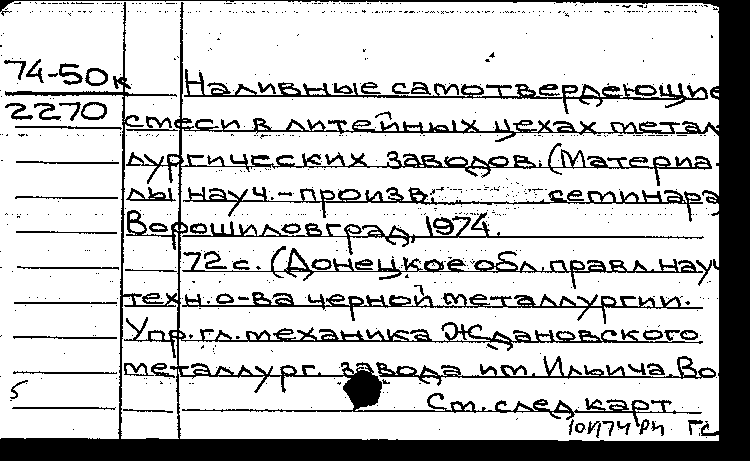 74-50к
2270
Наливные самотвердеющие
смеси в литейных цехах метал
лургических заводов. (Материа-
лы науч.-произв. семинара
Ворошиловград, 1974.
72 с. (Донецкое обл. правл. науч
техн. о-ва черной металлургии.
Упр. гл. механика Ждановского
металлург. завода им. Ильича. Во
5
См. след. карт.